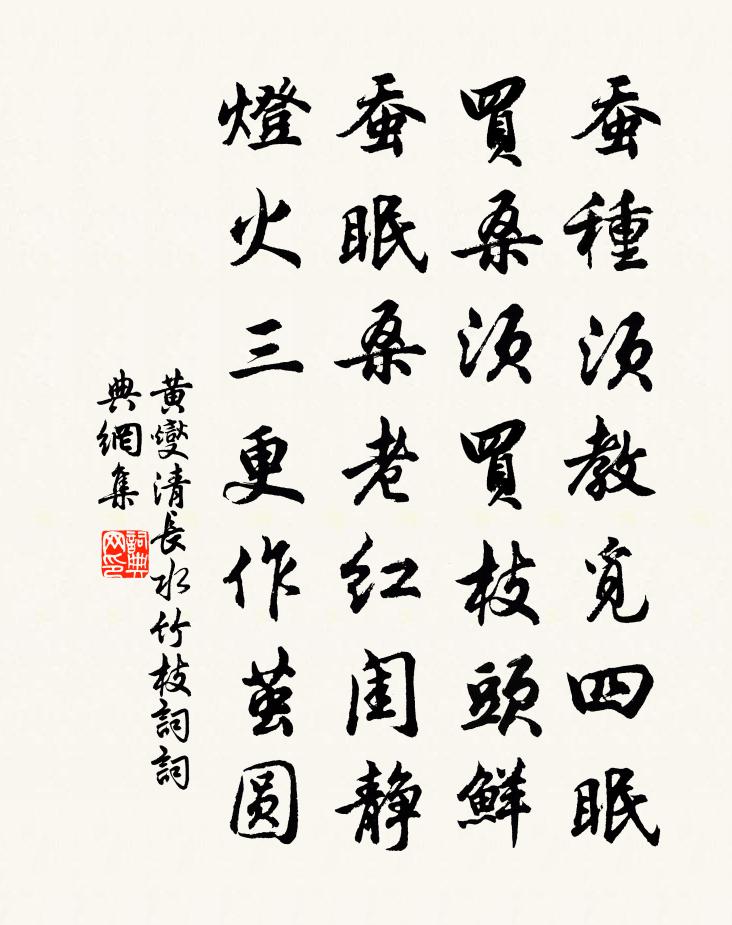 蚕種須教覓四眠
買桑須買枝頭鮮
蚕眠桑老红闺静
燈火三更作茧圆
黄燮清長水竹枝詞詞
典網集
詞典网印